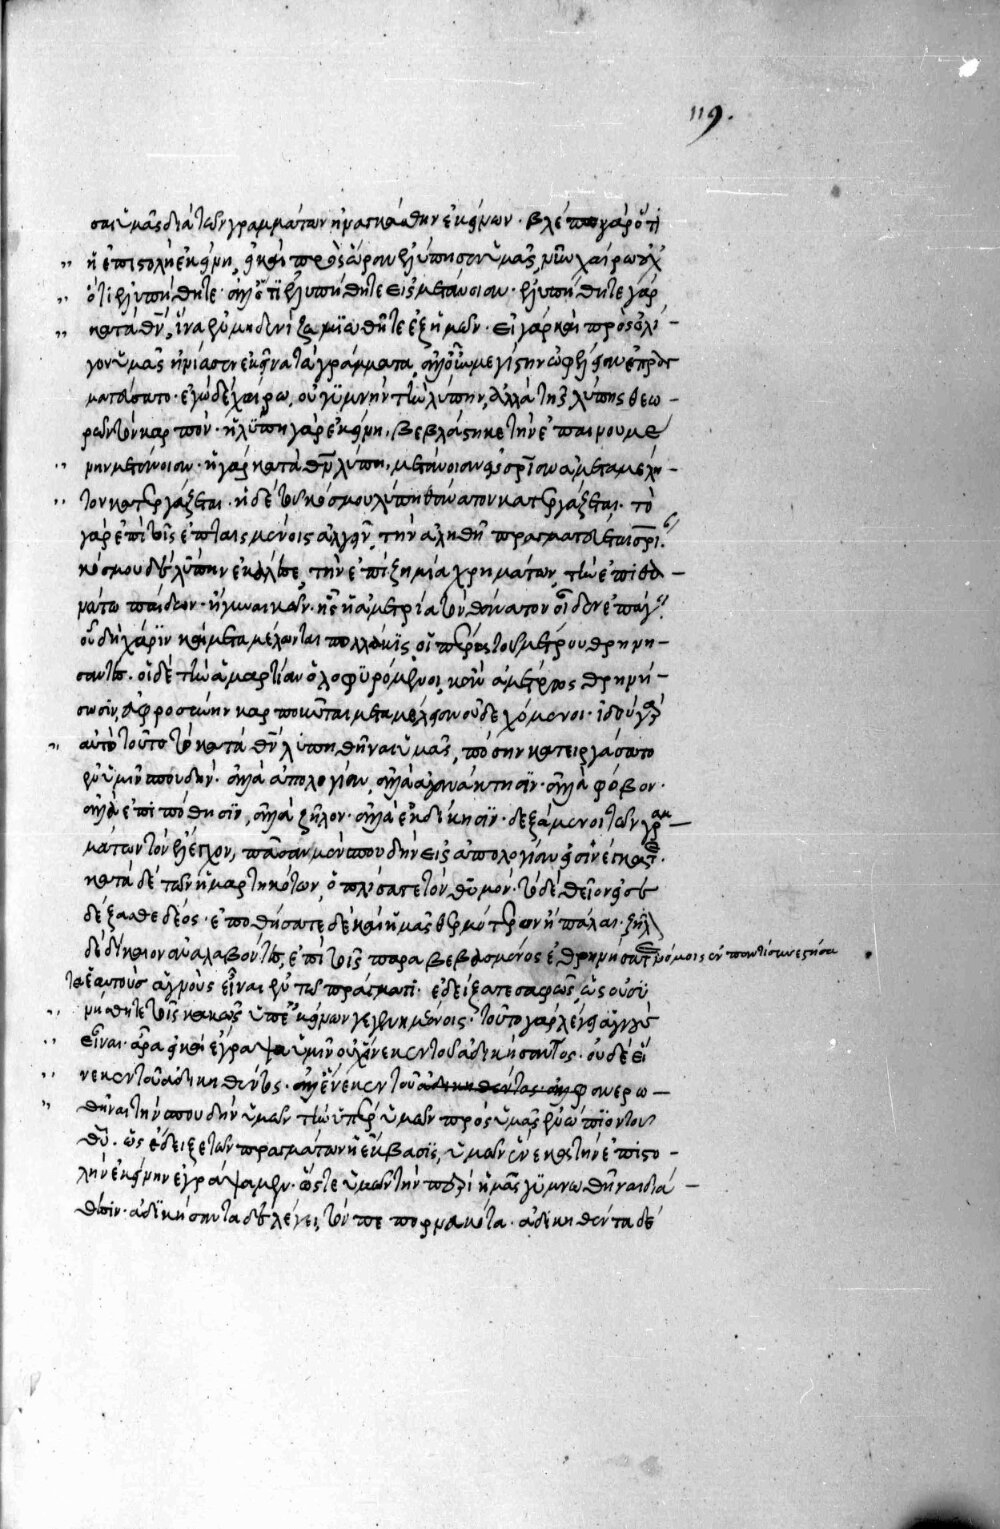 119.
σαι ὑμᾶς διὰ τῶν γραμμάτων ἠναγκάσθην ἐκείνων · βλέπω γὰρ ὅτι
ἡ ἐπιστολὴ ἐκείνη, εἰ καὶ πρὸς ὥραν ἐλύπησεν ὑμᾶς, νῦν χαίρω οὐχ
ὅτι ἐλυπήθητε · ἀλλ' ὅτι ἐλυπήθητε εἰς μετάνοιαν · ἐλυπήθητε γὰρ
κατὰ θν, ἵνα ἐν μηδενὶ ζημιωθῆτε ἐξ ἡμῶν · εἰ γὰρ καὶ πρὸς ὀλί -
γον ὑμᾶς ἠνίασεν ἐκεῖνα τὰ γράμματα, ἀλλ' οὖν μεγίστην ὠφέλειαν ἐπραγ
ματεύσατο · ἐγὼ δὲ χαίρω, οὐ γυμνὴν τὴν λύπην, ἀλλὰ τῆς λύπης θεω -
ρῶν τὸν καρπόν · ἡ λύπη γὰρ ἐκείνη, βεβλάστηκε τὴν ἐπαινουμέ
νην μετάνοιαν · ἡ γὰρ κατὰ θν λύπη, μετάνοιαν εἰς σρίαν ἀμεταμέλη -
τον κατεργάζεται · ἡ δὲ τοῦ κόσμου λύπη θάνατον κατεργάζεται · τὸ
γὰρ ἐπὶ τοῖς ἐπταισμένοις ἀλγεῖν, τὴν ἀληθῆ πραγματεύεται σρί
κόσμου δὲ λύπην ἐκάλεσε, τὴν ἐπὶ ζημία χρημάτων, τὴν ἐπὶ θα -
νάτω παίδων · ἢ γυναικῶν · ἧς ἡ ἀμετρία τὸν θάνατον οἶδεν ἐπάγ
οὗ δὴ χάριν καὶ μεταμέλονται πολλάκις, οἱ πέρα τοῦ μέτρου θρηνή -
σαντες · οἱ δὲ τὴν ἁμαρτίαν ὀλοφυρόμενοι, κἂν ἀμέτρως θρηνή -
σωσιν, εὐφροσύνην καρποῦνται μεταμέλειαν οὐ δεχόμενοι · ἰδοὺ γὰρ
αὐτὸ τοῦτο τὸ κατὰ θν λυπηθῆναι ὑμᾶς, πόσην κατειργάσατο
ἐν ὑμῖν σπουδήν · ἀλλὰ ἀπολογίαν, ἀλλὰ ἀγανάκτησιν · ἀλλὰ φόβον ·
ἀλλὰ ἐπιπόθησιν, ἀλλὰ ζῆλον · ἀλλὰ ἐκδίκησιν · δεξάμενοι τῶν γραμ -
μάτων τὸν ἔλεγχον, πᾶσαν μὲν σπουδὴν εἰς ἀπολογίαν εἰσηνέγκατε ·
κατὰ δὲ τῶν ἡμαρτηκότων, ὁπλίσατε τὸν θυμόν · τὸ δὲ θεῖον εἰσε
δέξασθε δέος · ἐποθήσατε δὲ καὶ ἡμᾶς θερμότερον ἢ πάλαι · ζῆλ
δὲ δίκαιον ἀναλαβόντες, ἐπὶ τοῖς παραβεβασμένος ἐθρηνήσατε νόμοις ἐν παντὶ συνεστήσα
τε ἑαυτοὺς ἁγνοὺς εἶναι ἐν τῶ πράγματι · ἐδείξατε σαφῶς, ὡς οὐ συ
νήσθητε τοῖς κακῶς ὑπ' ἐκείνων γεγενημένοις · τοῦτο γὰρ λέγει ἁγνοὺς
εἶναι · ἄρα εἰ καὶ ἔγραψα ὑμῖν οὐχ εἵνεκεν τοῦ ἀδικήσαντος · οὐδὲ εἵ
νεκεν τοῦ ἀδικηθέντος · ἀλλ' εἵνεκεν τοῦ ἀδικηθέντος · ἀλλ φανερω -
θῆναι τὴν σπουδὴν ὑμῶν τὴν ὑπὲρ ὑμῶν πρὸς ὑμᾶς ἐνώπιον τοῦ
θυ · ὡς ἔδειξε τῶν πραγμάτων ἡ ἔκβασις, ὑμῶν ἕνεκα τὴν ἐπιστο -
λὴν ἐκείνην ἐγράψαμεν · ὥστε ὑμῶν τὴν περὶ ἡμᾶς γυμνωθῆναι διά -
θεσιν · ἀδικήσαντα δὲ λέγει, τὸν πεπορνηκότα · ἀδικηθέντα δὲ